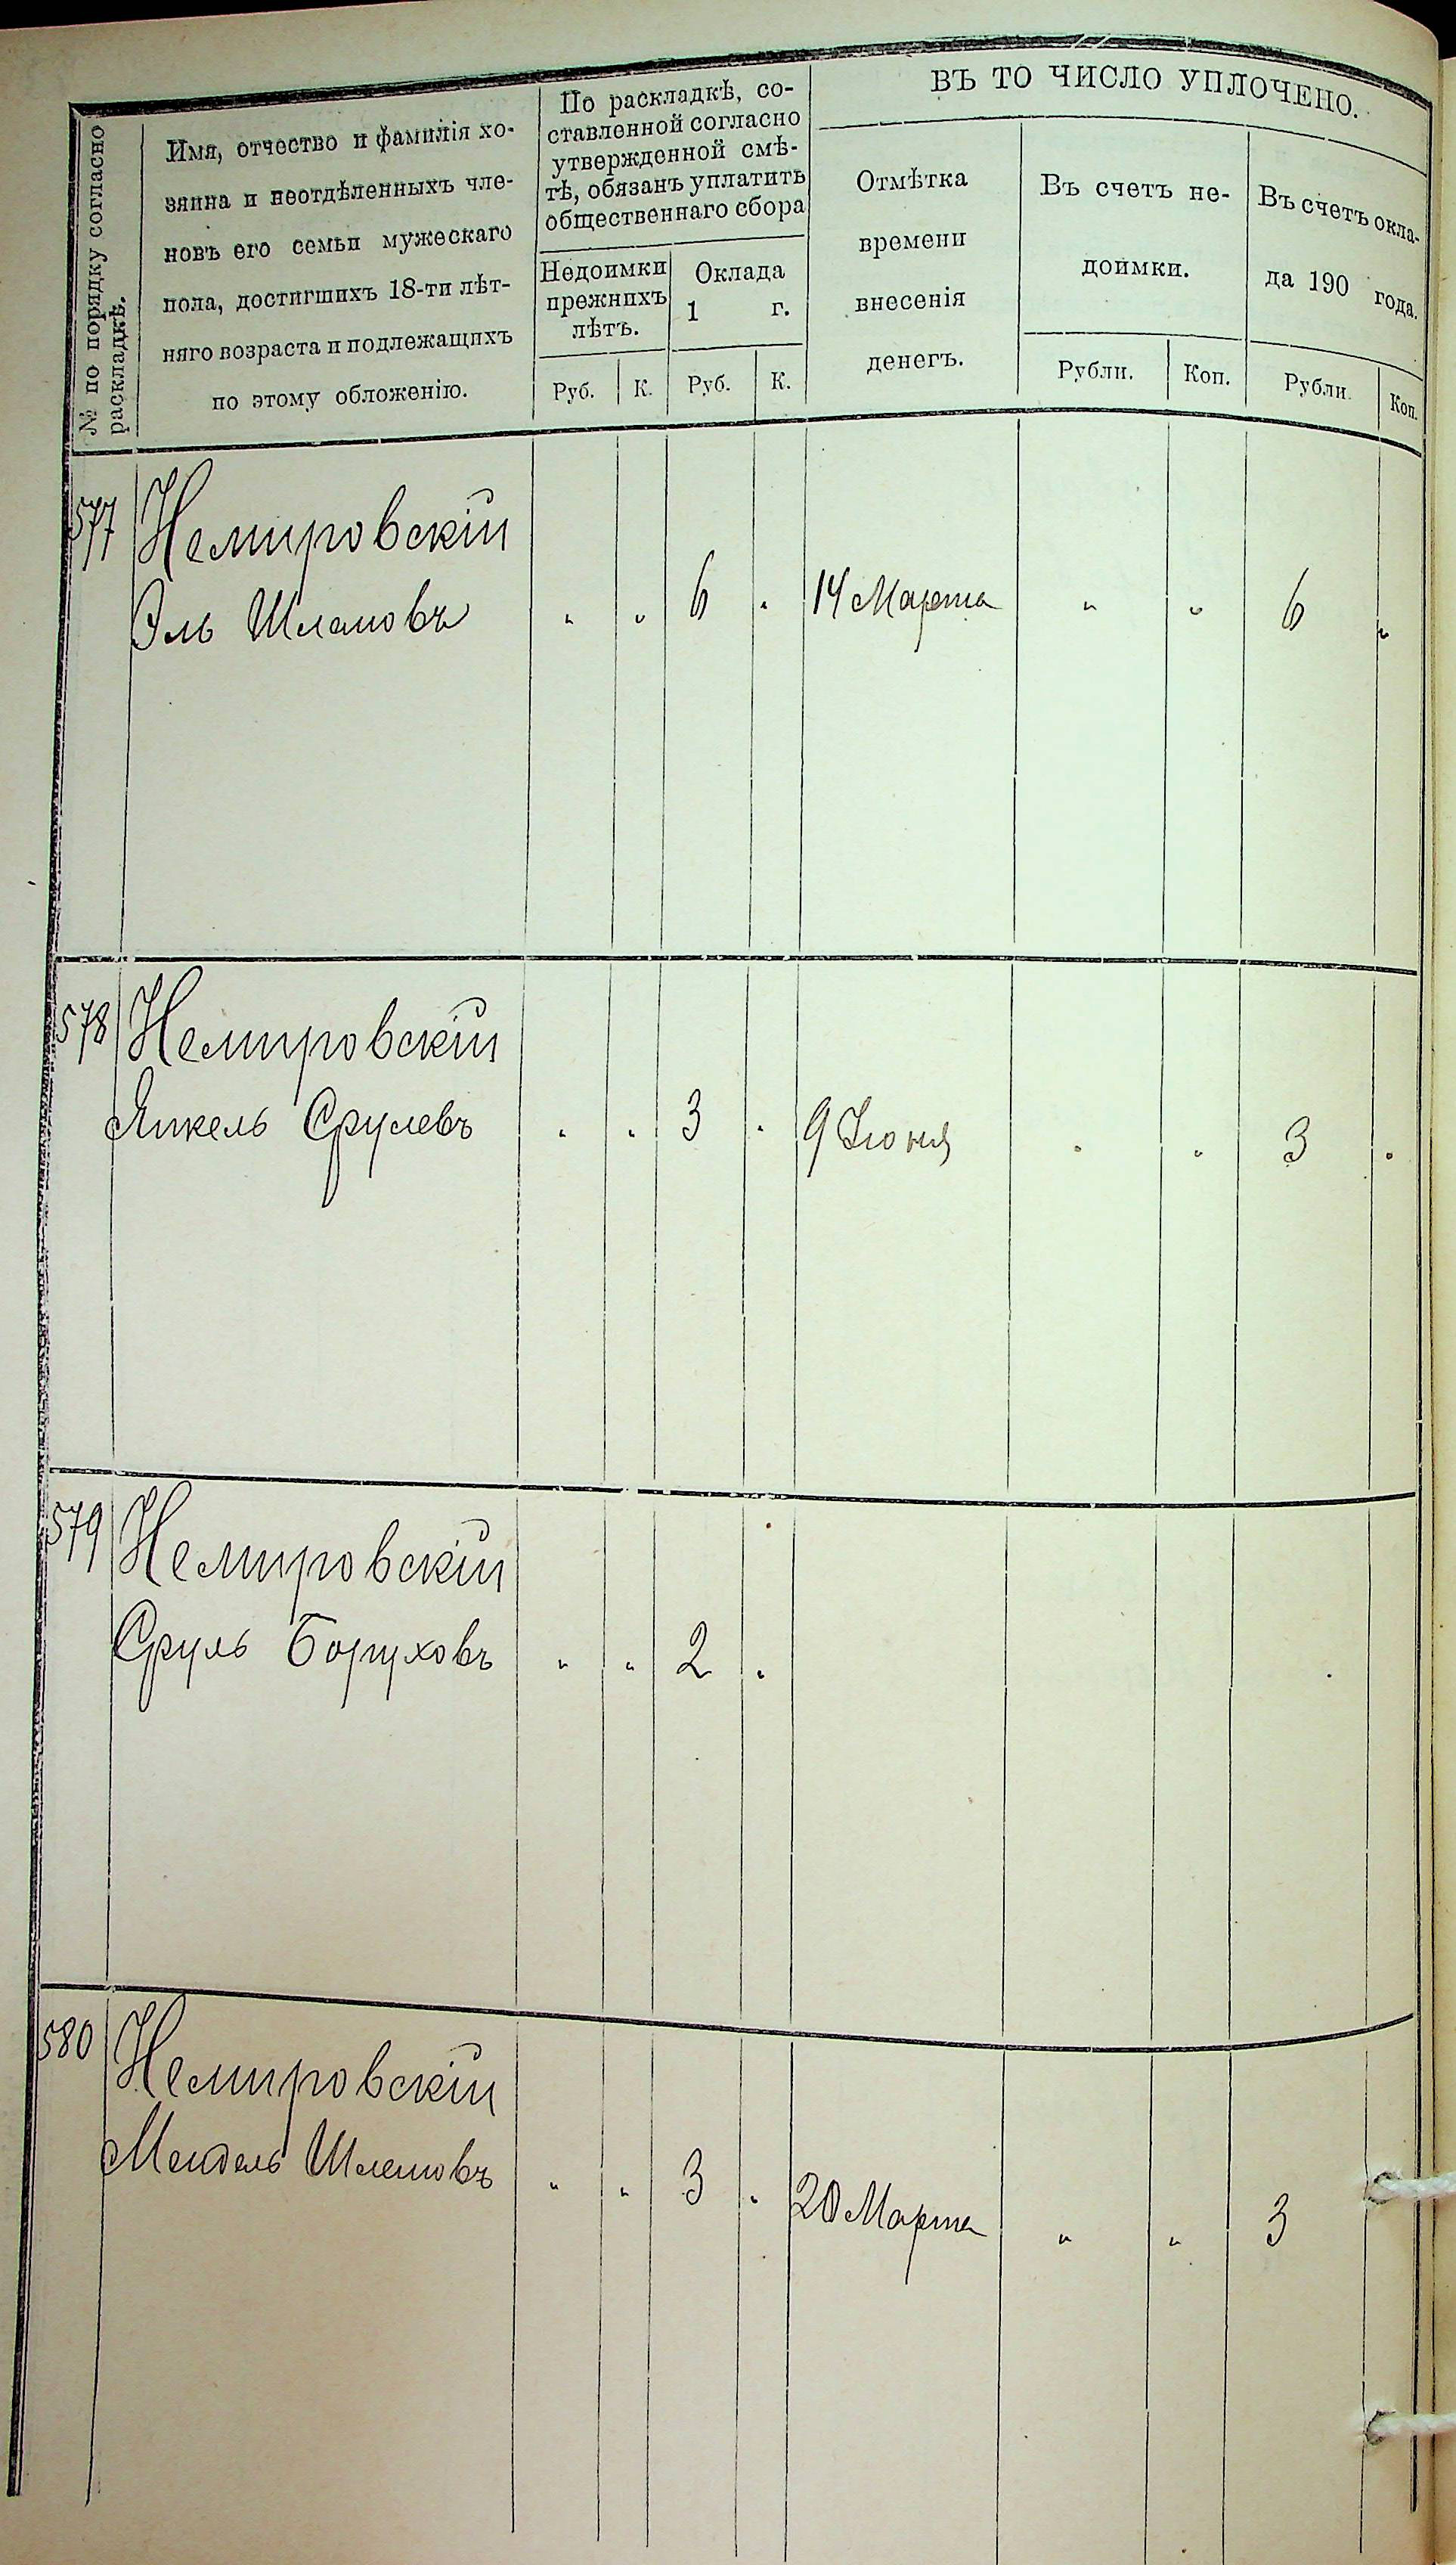 № по порядку согласно
раскладкѣ.
Имя, отчество и фамилія хо-
зяина и неотдѣленныхъ чле-
новъ его семьи мужескаго
пола, достигшихъ 18-ти лѣт-
няго возраста и подлежащихъ
по этому обложенію.
По раскладкѣ, со-
ставленной согласно
утвержденной смѣ-
тѣ, обязанъ уплатить
общественнаго сбора
Недоимки
прежнихъ
лѣтъ.
Оклада
1 г.
Руб. К. Руб. К.
ВЪ ТО ЧИСЛО УПЛОЧЕНО.
Отмѣтка
времени
внесенія
денегъ.
Въ счетъ не-
доимки.
Рубли. Коп.
Въ счетъ окла-
да 190 года.
Рубли. Коп.
577 Немировскій
Эль Шлемовъ " " 6 " 14 Марта " " 6 "
578 Немировскій
Янкель Срулевъ " " 3 " 9 Іюня " " 3 "
579 Немировскій
Сруль Боруховъ " " 2 "
580 Немировскій
Мендель Шлемовъ " " 3 " 20 Марта " " 3